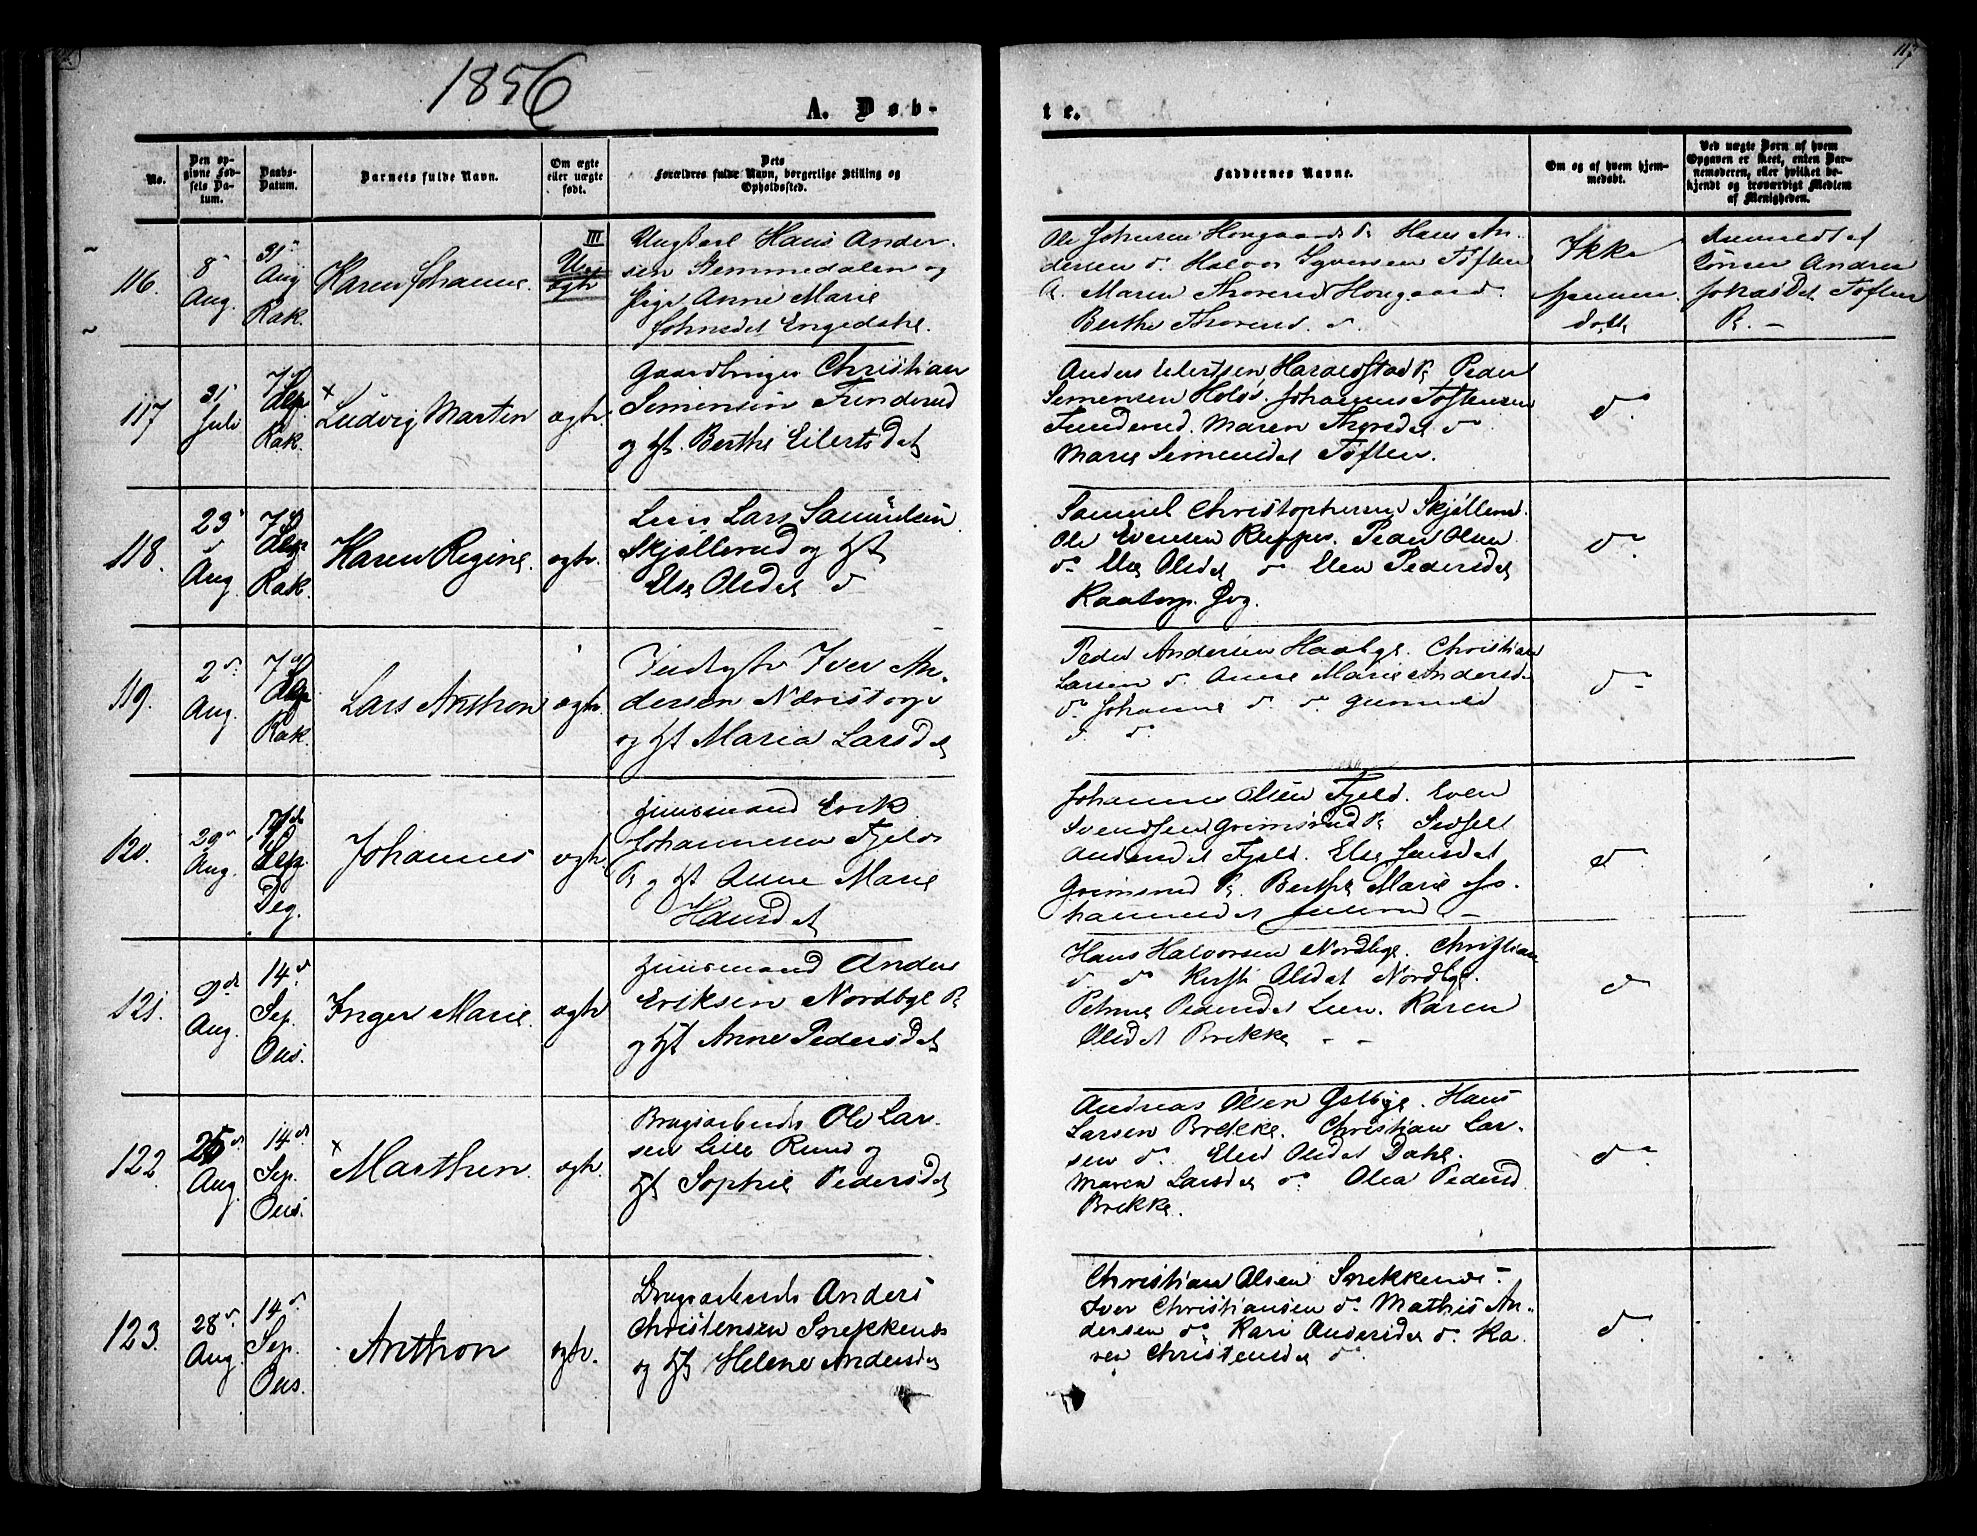 1856
117
A. Døb-
te.
No.
Den op-
givne Fød-
sels Da-
tum.
Daabs-
Datum.
Barnets fulde Navn.
Om ægte
eller uægte
født.
Dets
Forældres fulde Navn, borgerlige Stilling og
Opholdssted.
Faddernes Navne.
Om og af hvem hjem-
medøbt.
Ved uægte Børn af hvem
Opgaven er skeet, enten Bar-
nemoderen, eller hvilket be-
kjendt og troværdigt Medlem
af Menigheden.
116.
8
Aug.
31
Aug
Rak.
Karen Johanne.
III
Uægte
Ungkarl Hans Ander-
sen Hemmedalen og
Pige Anne Marie
Johnsdet Engedahl.
Ole Johnsen Hougaard R. Hans An-
dersen do. Halvor Tøften
R. Maren Thorens Hougaard.
Berthe Thorens do.
Ikke
hjemme-
døbt
Anmeldt af
Andrea
Tøften
R. -
117
31
Juli
7de
Sep
Rak.
× Ludvig Martin
ægte.
Gaardbruger Christian
Simensen Funderud
og H. Berthe Eilertsdet
Anders Eilertsen Haraldstad R. Peder
Simensen Holøs. Johannes Toftensen
Funderud. Maren Thorsdet do
Marie Simensdet Tøften.
do.
118.
23
Aug
7de
Sep
Rak.
Karen Regine.
ægte.
Lars Samuelsen
Skjøllerud og Hst
Else Olsdet do
Samuel Christophersen Skjøllerud.
Ole Evensen Peder Olsen
do. Else Olsdet do Pedersdet
Raatorp.
do.
119.
2do
Aug.
7de
Sep
Rak.
Lars Anthon
ægte.
Iver An-
dersen Næristorp
og Hst Maria Larsdet
Peder Andersen Haabye. Christian
Larsen do. Anne Marie Andersd.
do. Johanne do. do. Gunnild
do. do.
do.
120.
29
Aug.
7de
Sep.
Deg.
Johannes
ægte
Huusmand Erik
Johannesen Fjeld
R. og Hst Anne Marie
Hansdet
Johannes Olsen Fjeld. Even
Svendsen Grimsrud R. Sidsel
Andersdet Fjeld. Else Jensdet
Grimsrud R. Berthe Marie Jo-
hannesdet
do.
121.
9de
Aug.
14de
Sep.
Ous.
Inger Marie
ægte
Huusmand Anders
Eriksen Nordbye R
og Hst Anne Pedersdet
Hans Halvorsen Nordbye. Christian
do. do. Kersti Olsdet Nordbye.
Petrine Pedersdet Lien. Karen
Olsdet Brekke - -
do
122.
25
Aug.
14de
Sep.
Ous.
× Marthin.
ægte.
Brugsarbeider Ole Lar-
sen Lille Rund og
Hst Sophie Pedersdet
Andreas Olsen Østbye. Hans
Larsen Brekke. Christian Lar-
sen do. Elen Olsdet Dahl.
Maren Larsdet do. Olea Pedersd
Brekke.
do.
123.
28de
Aug.
14de
Sep.
Ous.
Anthon
ægte.
Brugsarbeider Anders
Christensen Snekkenes
og Hst Helene Andersdet
Christian Olsen Snekkenes.
Iver Christiansen do. Mathis An-
dersen do. Kari Andersdet do. Ka-
ren Christensdet do.
do.